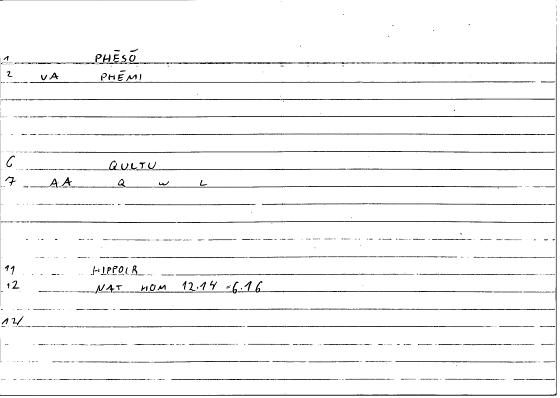 1 PHĒSŌ
2 VA PHĒMI
6 QULTU
7 AA Q W L
11 HIPPOIR
12 NAT HOM 12.14 -6.16
12/